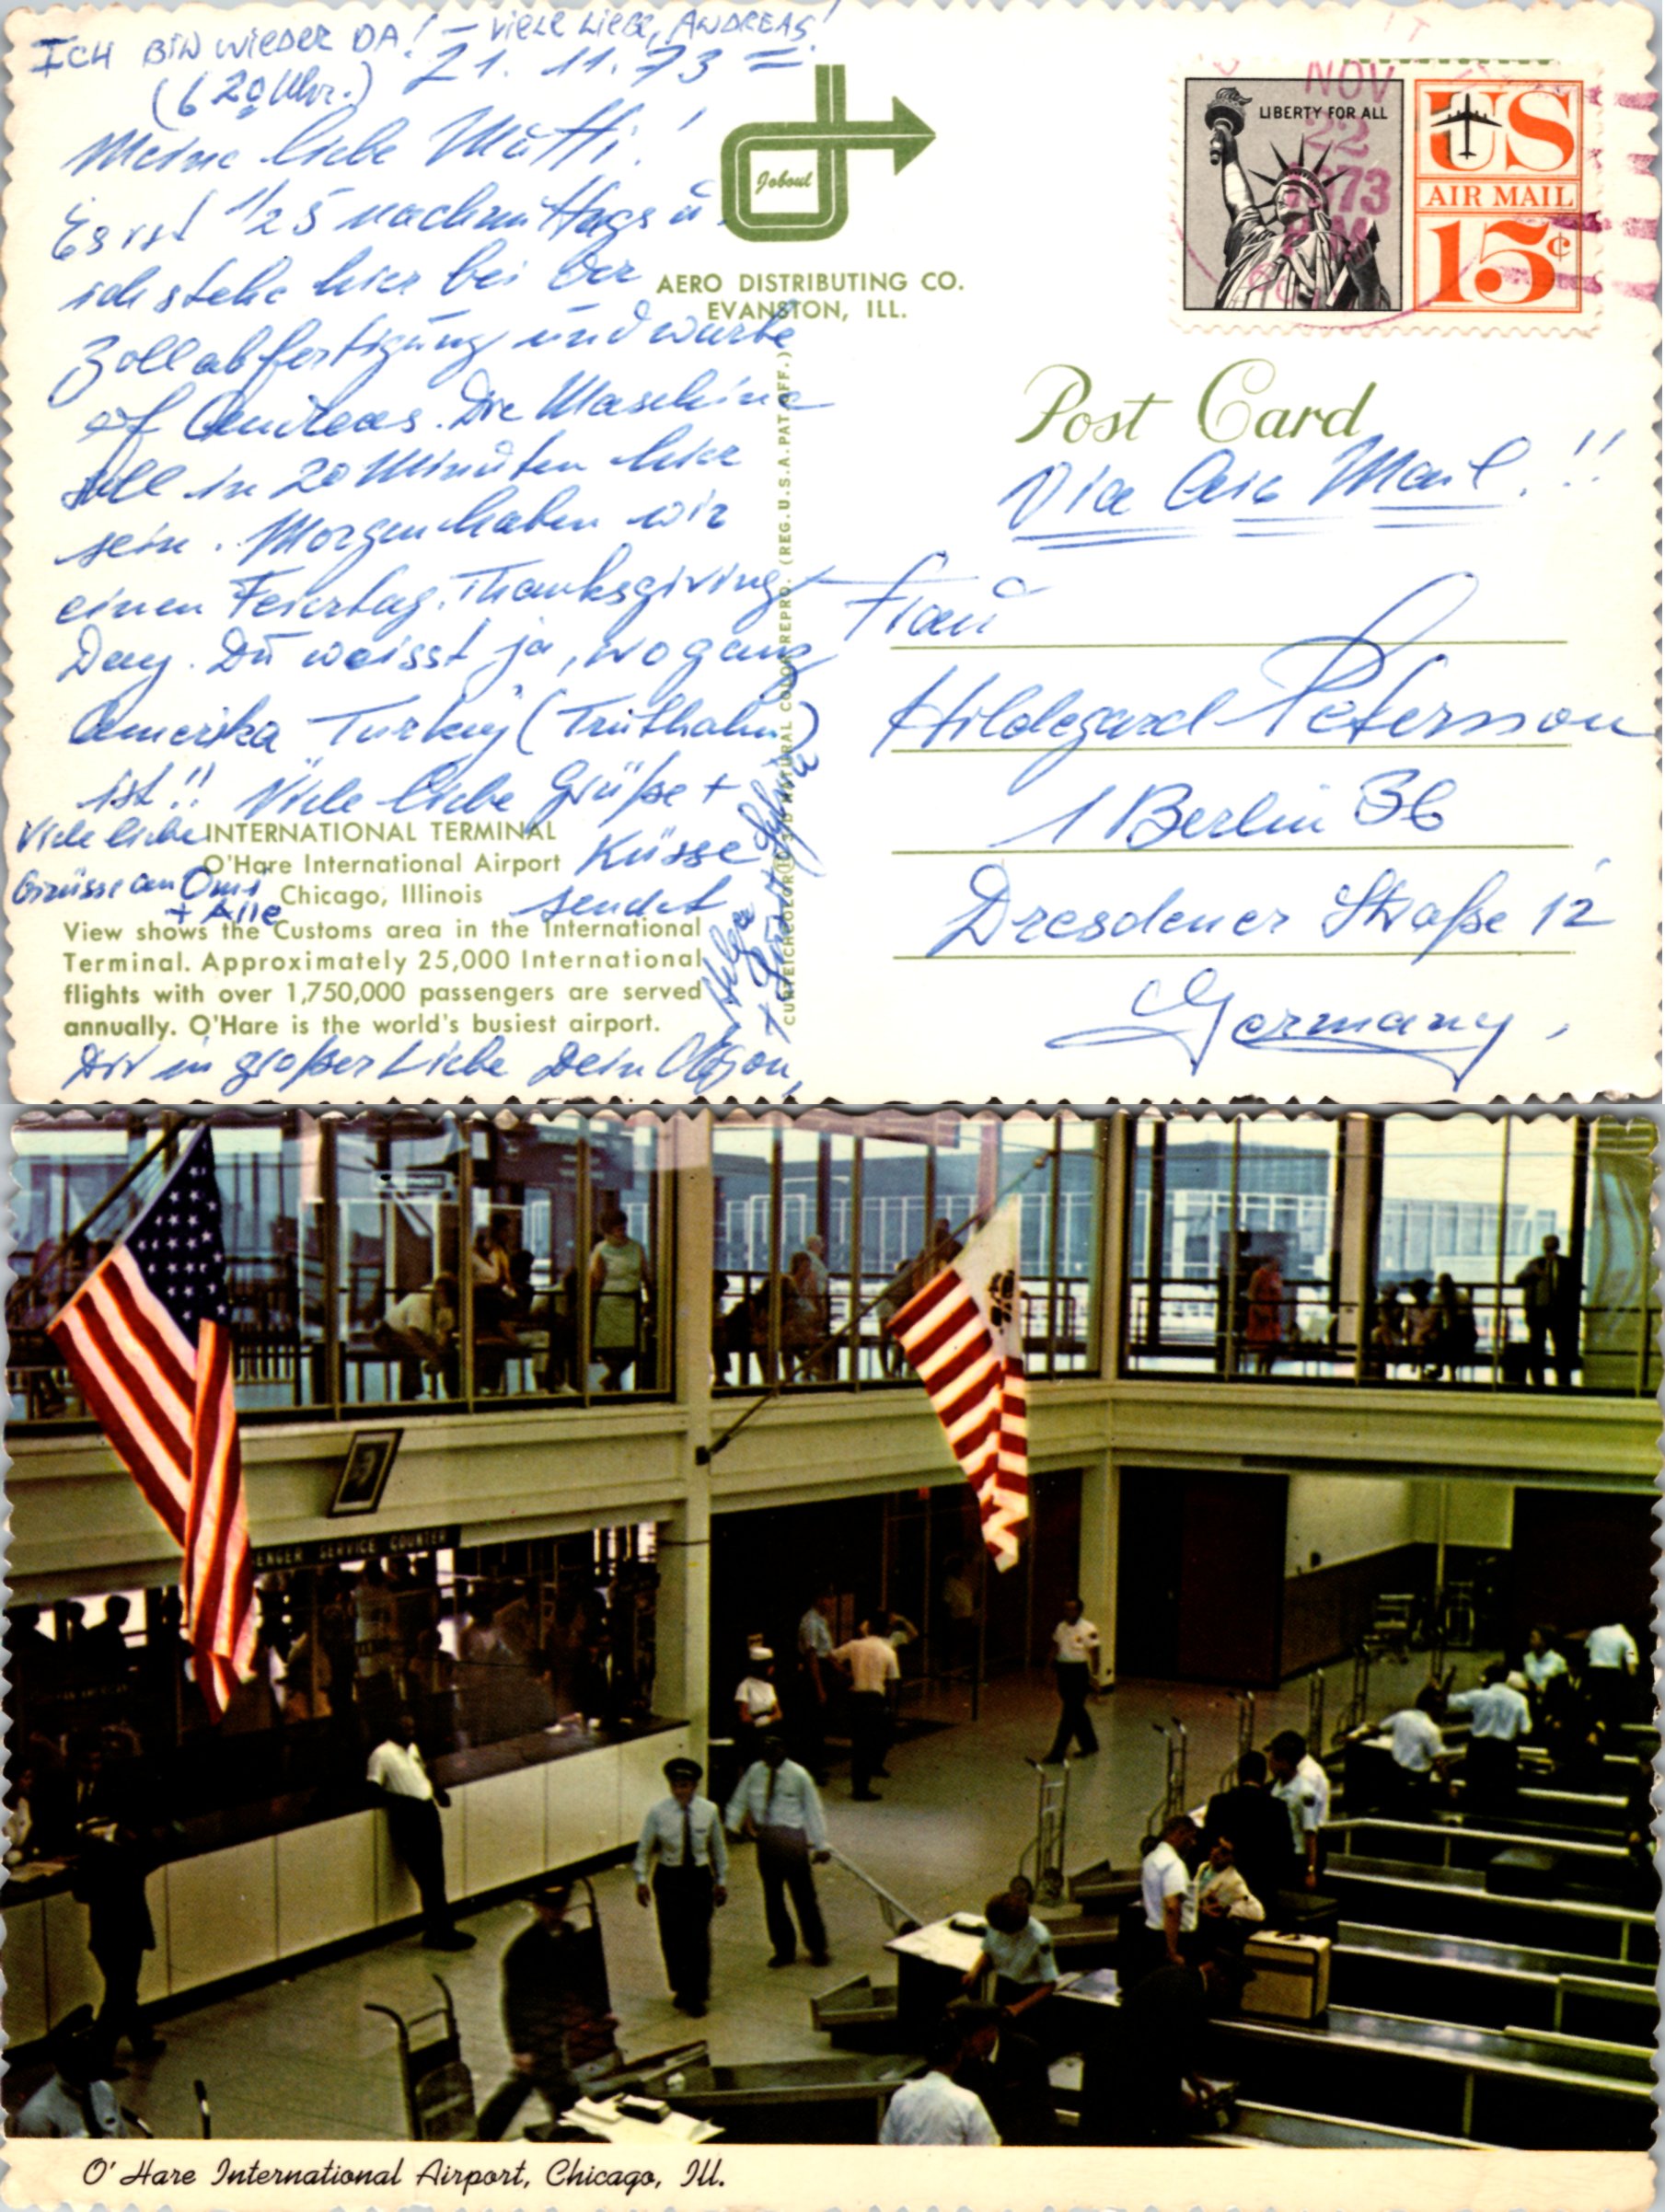 ICH BIN WIEDER DA! – VIELE LIEBE, ANDREAS!
(6 20 Uhr.) 21. 11. 73 =
Meine liebe Mutti!
Es ist 1/2 5 nachmittags u.
ich stehe hier bei der
Zollabfertigung und warte
auf Andreas. Die Maschine
soll in 20 Minuten hier
sein. Morgen haben wir
einen Feiertag. Thanksgiving
Day. Du weisst ja, wo ganz
Amerika Turkey (Truthahn)
ist!! Viele liebe Grüße +
Küsse
sendet
Dir in großer Liebe Dein Egon,
Helga
Viele liebe
Grüsse an Omi
+ Alle
Joboul
AERO DISTRIBUTING CO.
EVANSTON, ILL.
INTERNATIONAL TERMINAL
O'Hare International Airport
Chicago, Illinois
View shows the Customs area in the International
Terminal. Approximately 25,000 International
flights with over 1,750,000 passengers are served
annually. O'Hare is the world's busiest airport.
CURTEICHCOLOR® 3-D NATURAL COLOR REPRO. (REG. U.S.A. PAT. OFF.)
LIBERTY FOR ALL
US
AIR MAIL
15¢
NOV
22
1973
Post Card
Via Air Mail!!
Frau
Hildegard Petersson
1 Berlin 36
Dresdener Straße 12
Germany,
ENGER SERVICE COUNTER
O'Hare International Airport, Chicago, Ill.